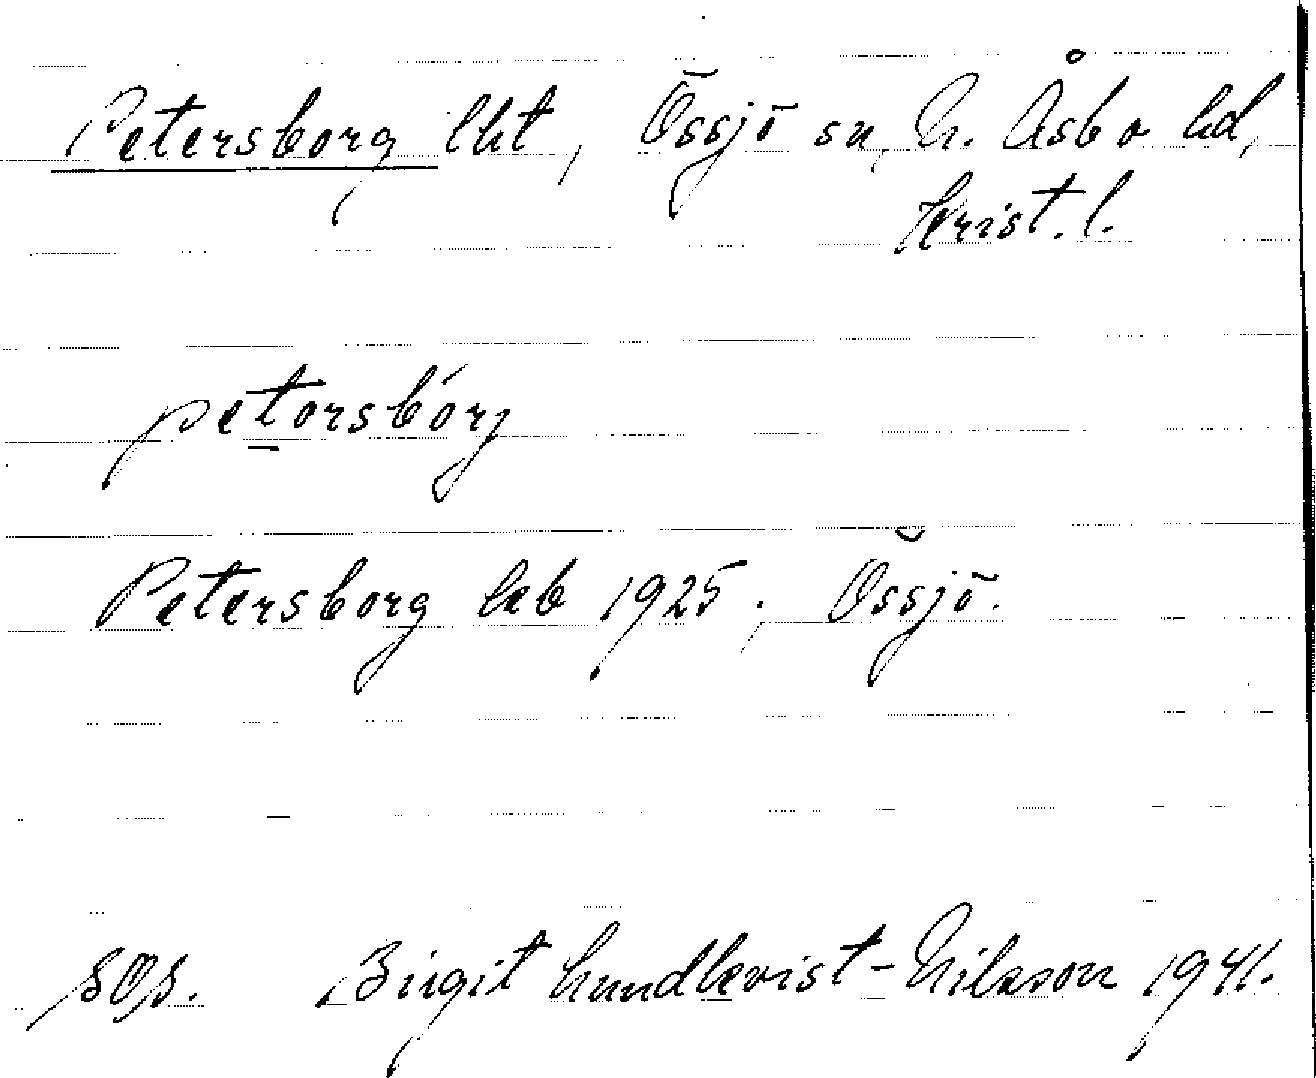 Petersborg lht, Össjö sn, N. Åsbo hd,
Krist. l.
petorsbórj
Petersborg leb 1925; Össjö.
SOS. Birgit Lundkvist-Nilsson 1941.